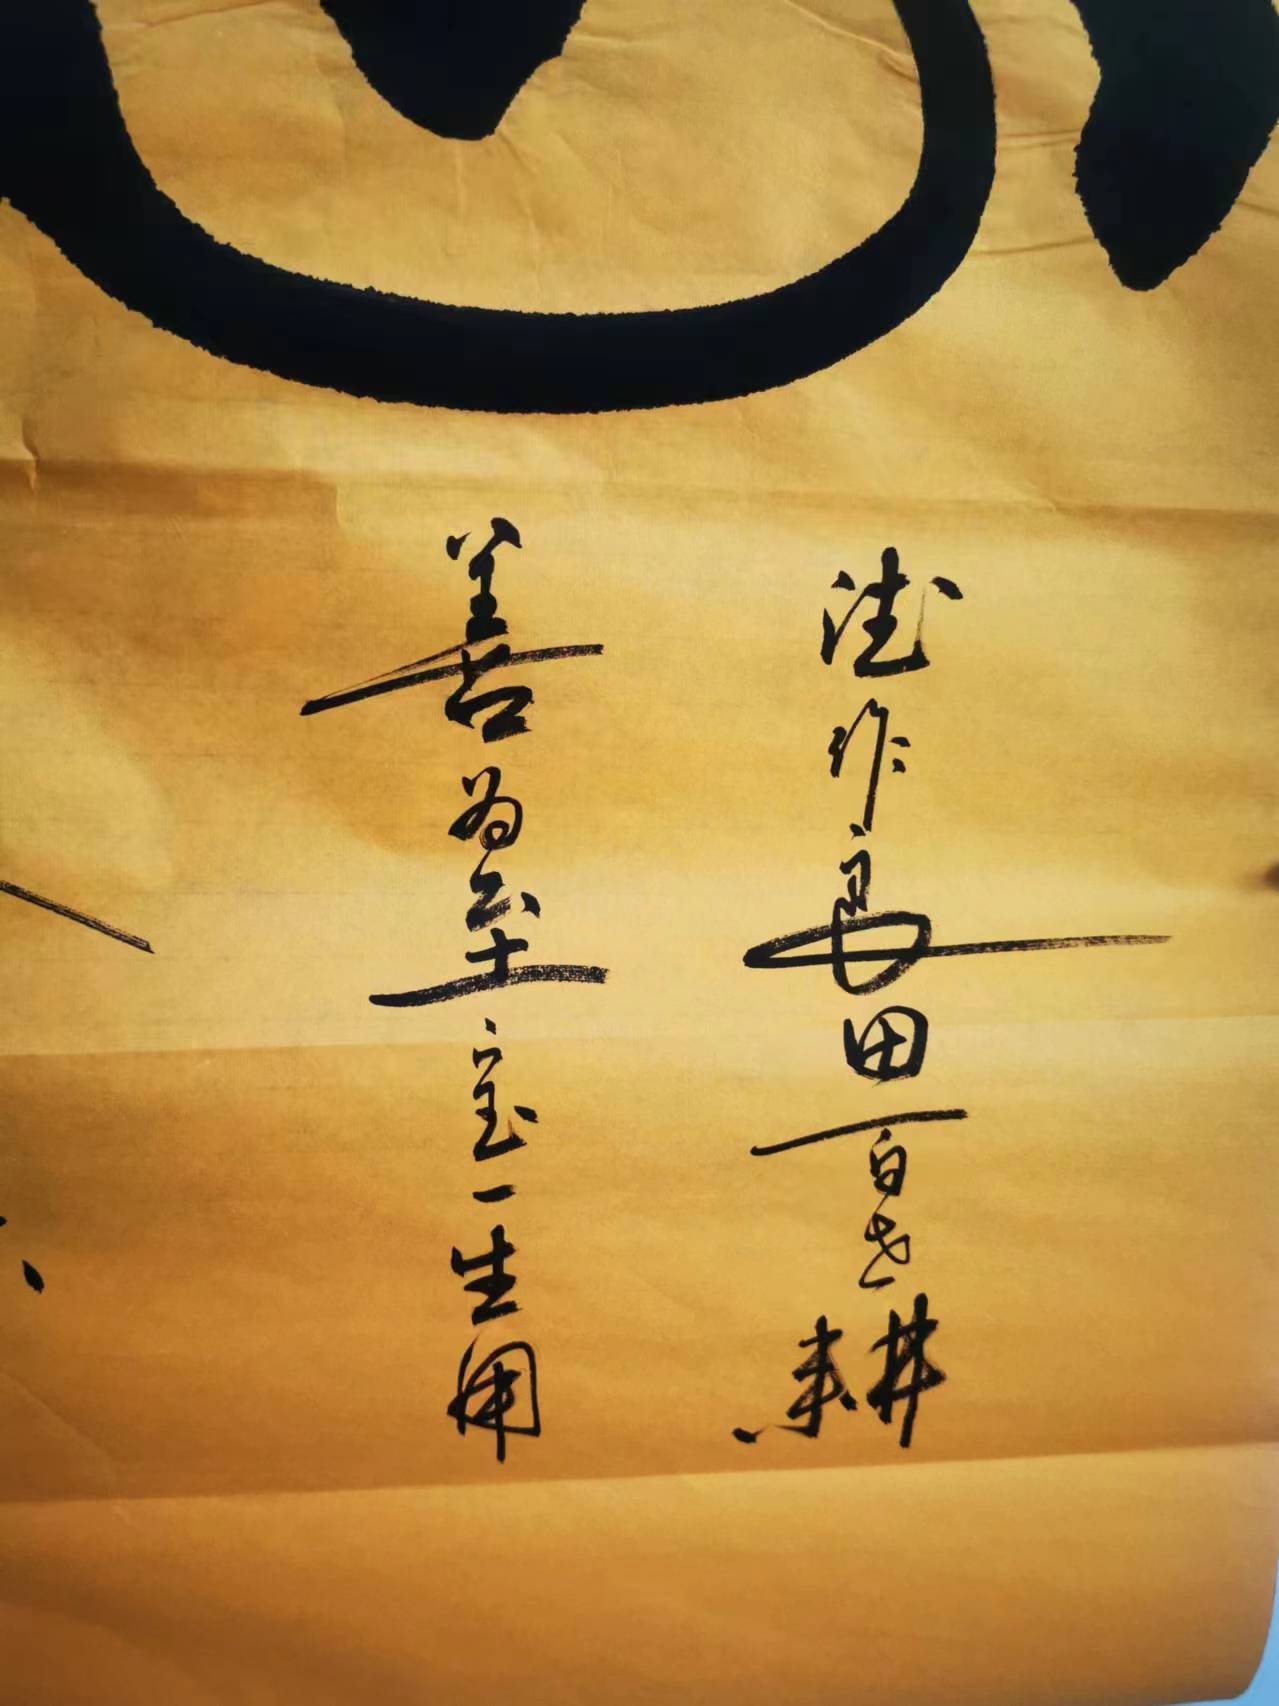 德作良田百世耕
善为至宝一生用